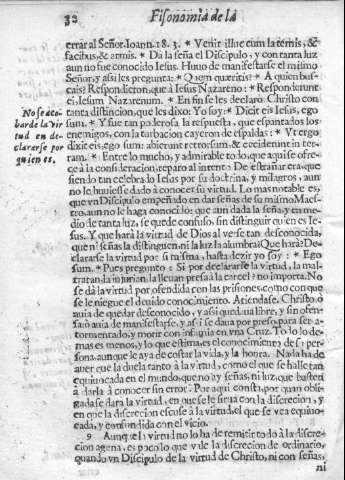 32 Fisonomia de la
errar al Señor. Ioann. 18. 3. * Venit illuc cum laternis, &
facibus, & armis. * Dà la seña el Discipulo, y con tanta luz
aun no fue conocido Iesus. Huvo de manifestarse el mismo
Señor, y assi les pregunta: * Quem quæritis? * A quien bus-
cais? Respondieron, que à Iesus Nazareno: * Responderunt
ei, Iesum Nazarenum. * En fin se les declarò Christo con
tanta distincion, que les dixo: Yo soy: * Dicit eis Iesus, ego
sum. * Y fue tan poderosa la respuesta, que espantados los
enemigos, con la turbacion cayeron de espaldas: * Vt ergo
dixit eis, ego sum: abierunt retrorsum, & ceciderunt in ter-
ram. * Entre lo mucho, y admirable todo, que aqui se ofre-
ce à la consideracion, reparo al intento: De estrañar era, que
siendo tan celebrado Iesus por su doctrina, y milagros, aun
no le huviesse dado à conocer su virtud. Lo mas notable es,
que vn Discipulo empeñado en dar señas de su mismo Maes-
tro, aun no le haga conocido: que aun dada la seña, y en me-
dio de tanta luz, se quede confuso, sin distinguir quien es Ie-
sus. Y que harà la virtud de Dios al verse tan desconocida,
que ni señas la distinguen, ni la luz la alumbra? Que harà? De-
clararse la virtud por si misma, hasta dezir yo soy: * Ego
sum. * Pues pregunto: Si por declararse la virtud, la mal-
tratan, la injurian, la llevan presa à la carcel? no importa: No
se dà la virtud por ofendida con las prisiones, como con que
se le niegue el devido conocimiento. Atiendase. Christo, ò
avia de quedar desconocido, y assi quedava libre, y sin ofen-
sa: ò avia de manifestarse, y assi se dava por preso, para ser a-
tormentado, y morir con infamia en vna Cruz. Todo lo de-
mas es menos, y lo que estima, es el conocimiento de si per-
sona, aunque le aya de costar la vida, y la honra. Nada ha de
aver que la duela tanto à la virtud, como el que se halle tan
equivocada en el mundo, que no ay señas, ni luz, que basten
à darla à conocer sin error: Por aqui consta, por quan obli-
gada se darà la virtud, en que se le sirva con la discrecion, y
en que la discrecion escuse à la virtud, el que se vea equivo-
cada, y confundida con el vicio.
9 Aunque la virtud no lo ha de remitir todo à la discre-
cion agena, es poco lo que vale la discrecion de ordinario,
quando vn Discipulo de la virtud de Christo, ni con señas,
ni
No se aco-
barde la vir
tud en de-
clararse por
quien es.